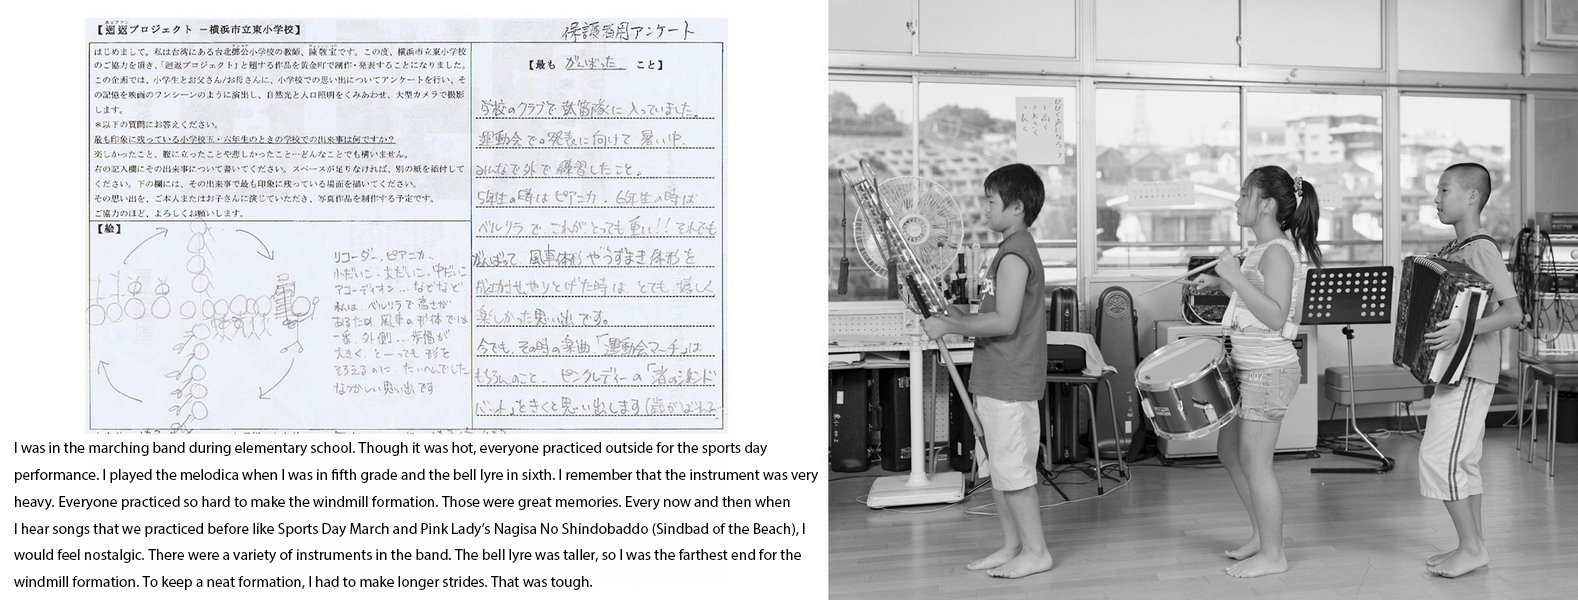 【廻返プロジェクト －横浜市立東小学校】
保護者用アンケート
はじめまして。私は台湾にある台北郷公小学校の教師、陳敬宝です。この度、横浜市立東小学校
のご協力を頂き、「廻返プロジェクト」と題する作品を黄金町で制作・発表することになりました。
この企画では、小学生とお父さん/お母さんに、小学校での思い出についてアンケートを行い、そ
の記憶を映画のワンシーンのように演出し、自然光と人口照明をくみあわせ、大型カメラで撮影
します。
＊以下の質問にお答えください。
最も印象に残っている小学校五・六年生のときの学校での出来事は何ですか？
楽しかったこと、腹に立ったことや悲しかったこと…どんなことでも構いません。
右の記入欄にその出来事について書いてください。スペースが足りなければ、別の紙を添付して
ください。下の欄には、その出来事で最も印象に残っている場面を描いてください。
その思い出を、ご本人またはお子さんに演じていただき、写真作品を制作する予定です。
ご協力のほど、よろしくお願いします。
【絵】
リコーダー、ピアニカ、
小だいこ、大だいこ、中だいこ
アコーディオン…などなど
私は ベルリラで 高さが
あるため 風車の 形体では
一番 外側… 歩幅が
大きく とーっても 形を
そろえるのに たいへんでした
なつかしい思い出です
【最も がんばった こと】
学校のクラブで 鼓笛隊に 入っていました。
運動会での発表に向けて 暑い中、
みんなで外で 練習したこと。
5年生の時は ピアニカ、6年生の時は
ベルリラで これが とっても 重い!! それでも
がんばって 風車体形や うずまき 体形を
成功させ、やりとげた時は、とても 嬉しく
楽しかった思い出です。
今でも、その時の楽曲「運動会マーチ」は
もちろんのこと、ピンクレディーの「渚のシンド
バット」をきくと思い出します
I was in the marching band during elementary school. Though it was hot, everyone practiced outside for the sports day
performance. I played the melodica when I was in fifth grade and the bell lyre in sixth. I remember that the instrument was very
heavy. Everyone practiced so hard to make the windmill formation. Those were great memories. Every now and then when
I hear songs that we practiced before like Sports Day March and Pink Lady’s Nagisa No Shindobaddo (Sindbad of the Beach), I
would feel nostalgic. There were a variety of instruments in the band. The bell lyre was taller, so I was the farthest end for the
windmill formation. To keep a neat formation, I had to make longer strides. That was tough.